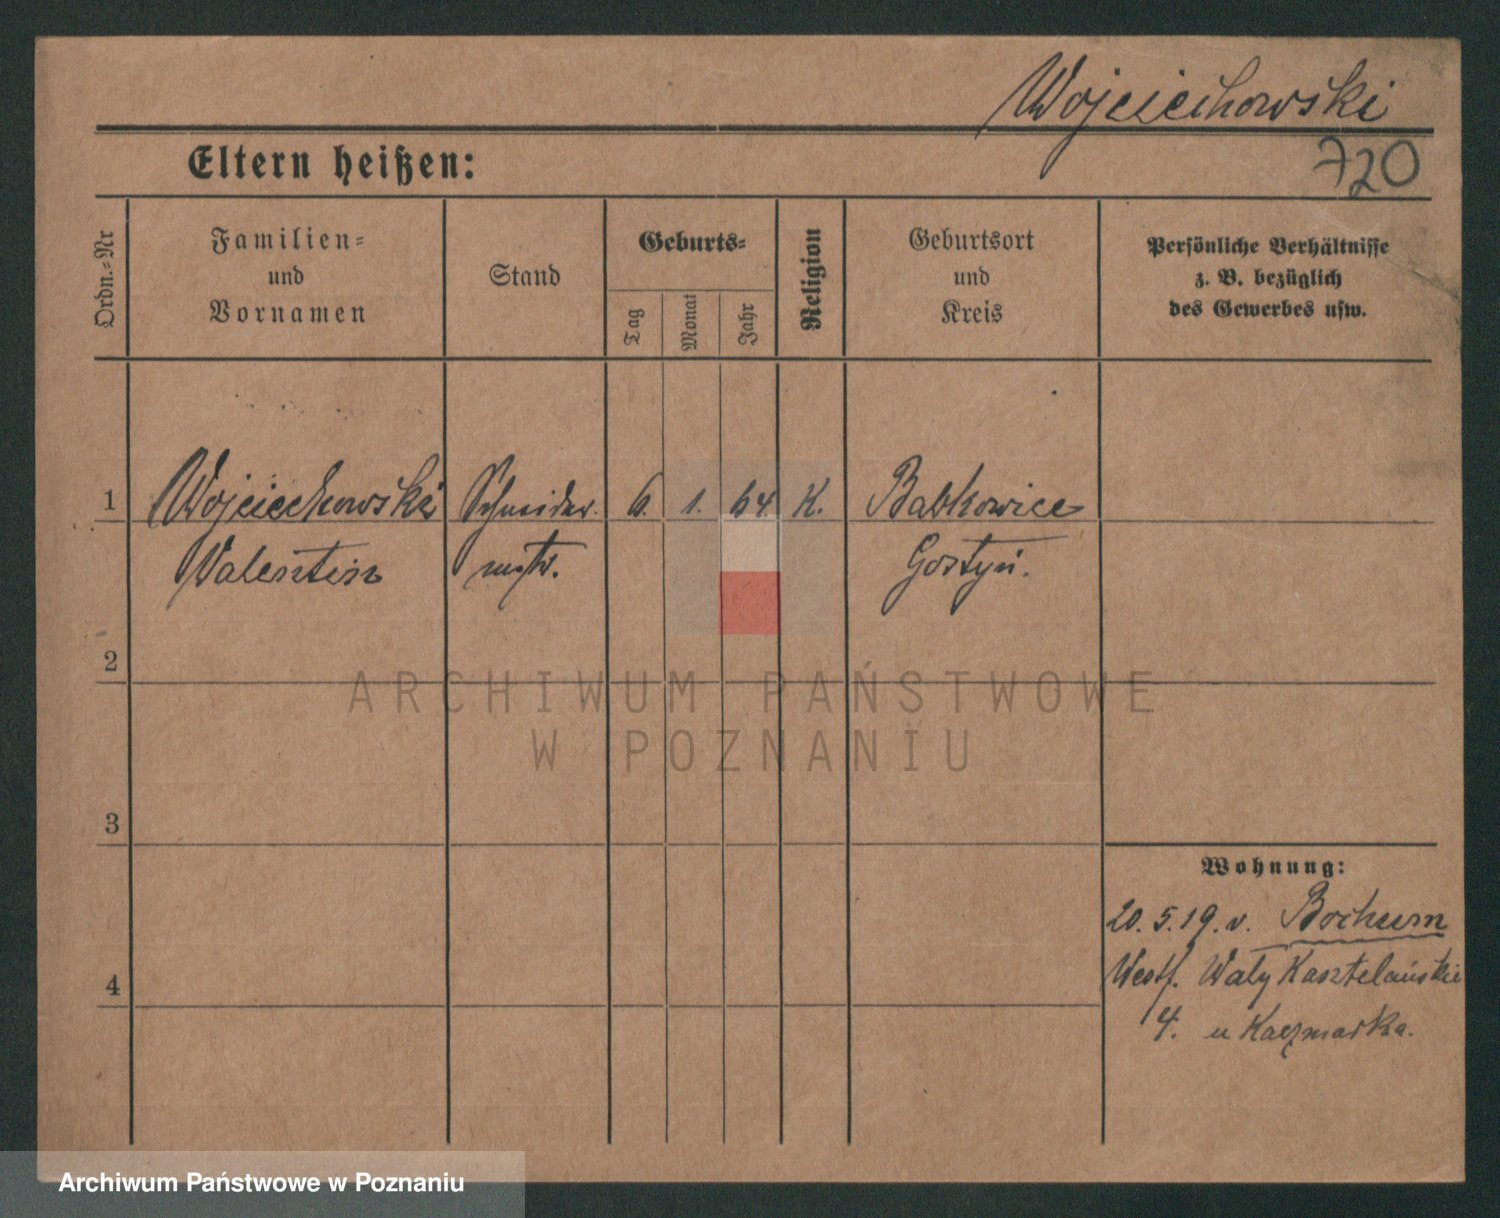 Wojciechowski
720
Eltern heißen:
Ordn.=Nr
Familien=
und
Vornamen
Stand
Geburts=
Tag
Monat
Jahr
Religion
Geburtsort
und
Kreis
Persönliche Verhältnisse
z. B. bezüglich
des Gewerbes usw.
1 Wojciechowski Schneider. 6. 1. 64 K. Babkowice
Valentin mstr. Gostyń.
2
3
4
ARCHIWUM PAŃSTWOWE
W POZNANIU
Wohnung:
20.5.19. v. Bochum
Westf. Wały Kasztelańskie
4. u Kaczmarka.
Archiwum Państwowe w Poznaniu